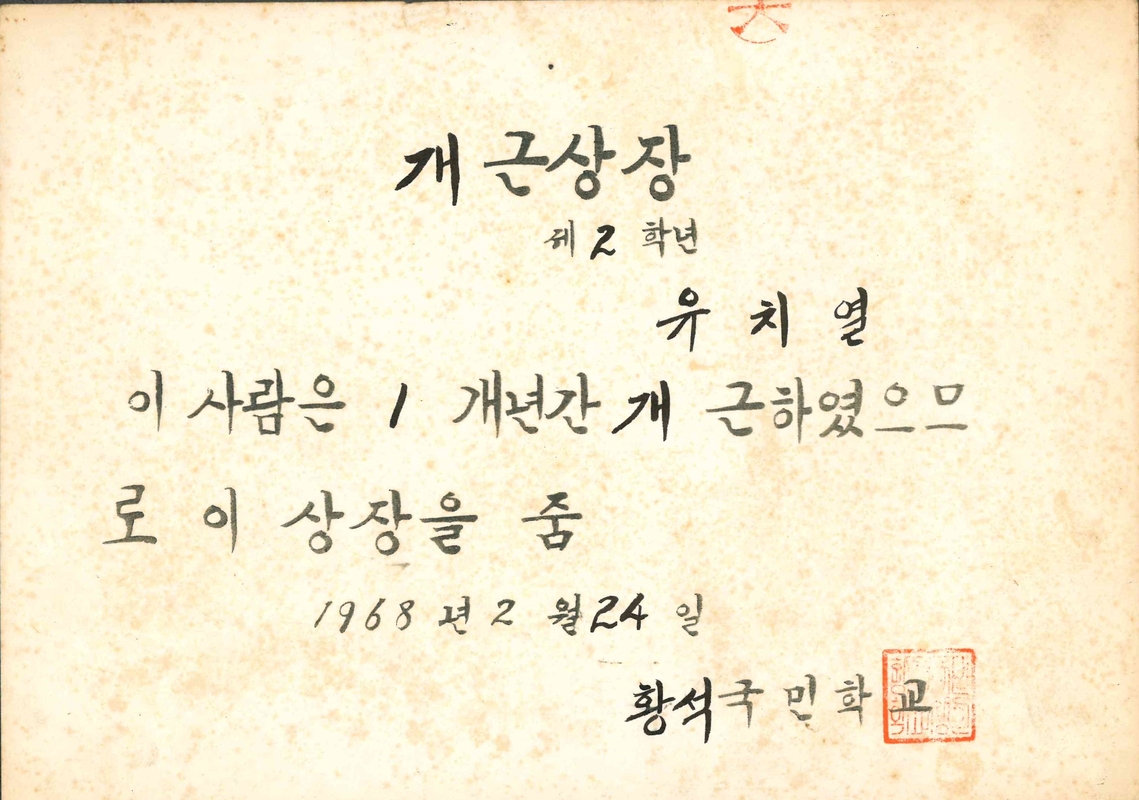 개근상장
제 2 학년
유 치 열
이 사람은 1 개년간 개 근하였으므
로 이 상장을 줌
1968 년 2 월 24 일
황석국민학교